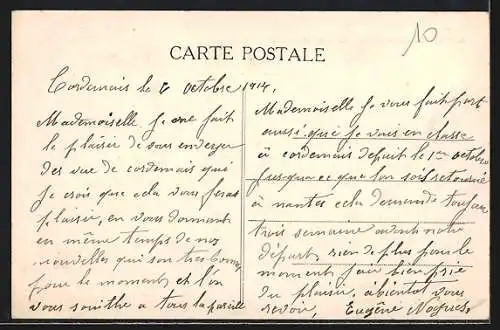 10
CARTE POSTALE
Cordemais le 6 octobre 1914.
Mademoiselle je me fait
le plaisir de vous envoyer
des vue de cordemais qui
je crois que cela vous feras
plaisir, en vous donnant
en même temps de nos
nouvelles qui son très bonnes
pour le moment et l'on
vous souaithe a tous la pareille
Mademoiselle je vous fait part
aussi que je vais en classe
à cordemais depuit le 1er octobre
jusqua ce que l'on soit retourné
à nantes cela demande toujours
trois semaine avant notre
départ, rien de plus pour le
moment j'aie bien prie
du plaisir, à bientot vous
revoir, Eugène